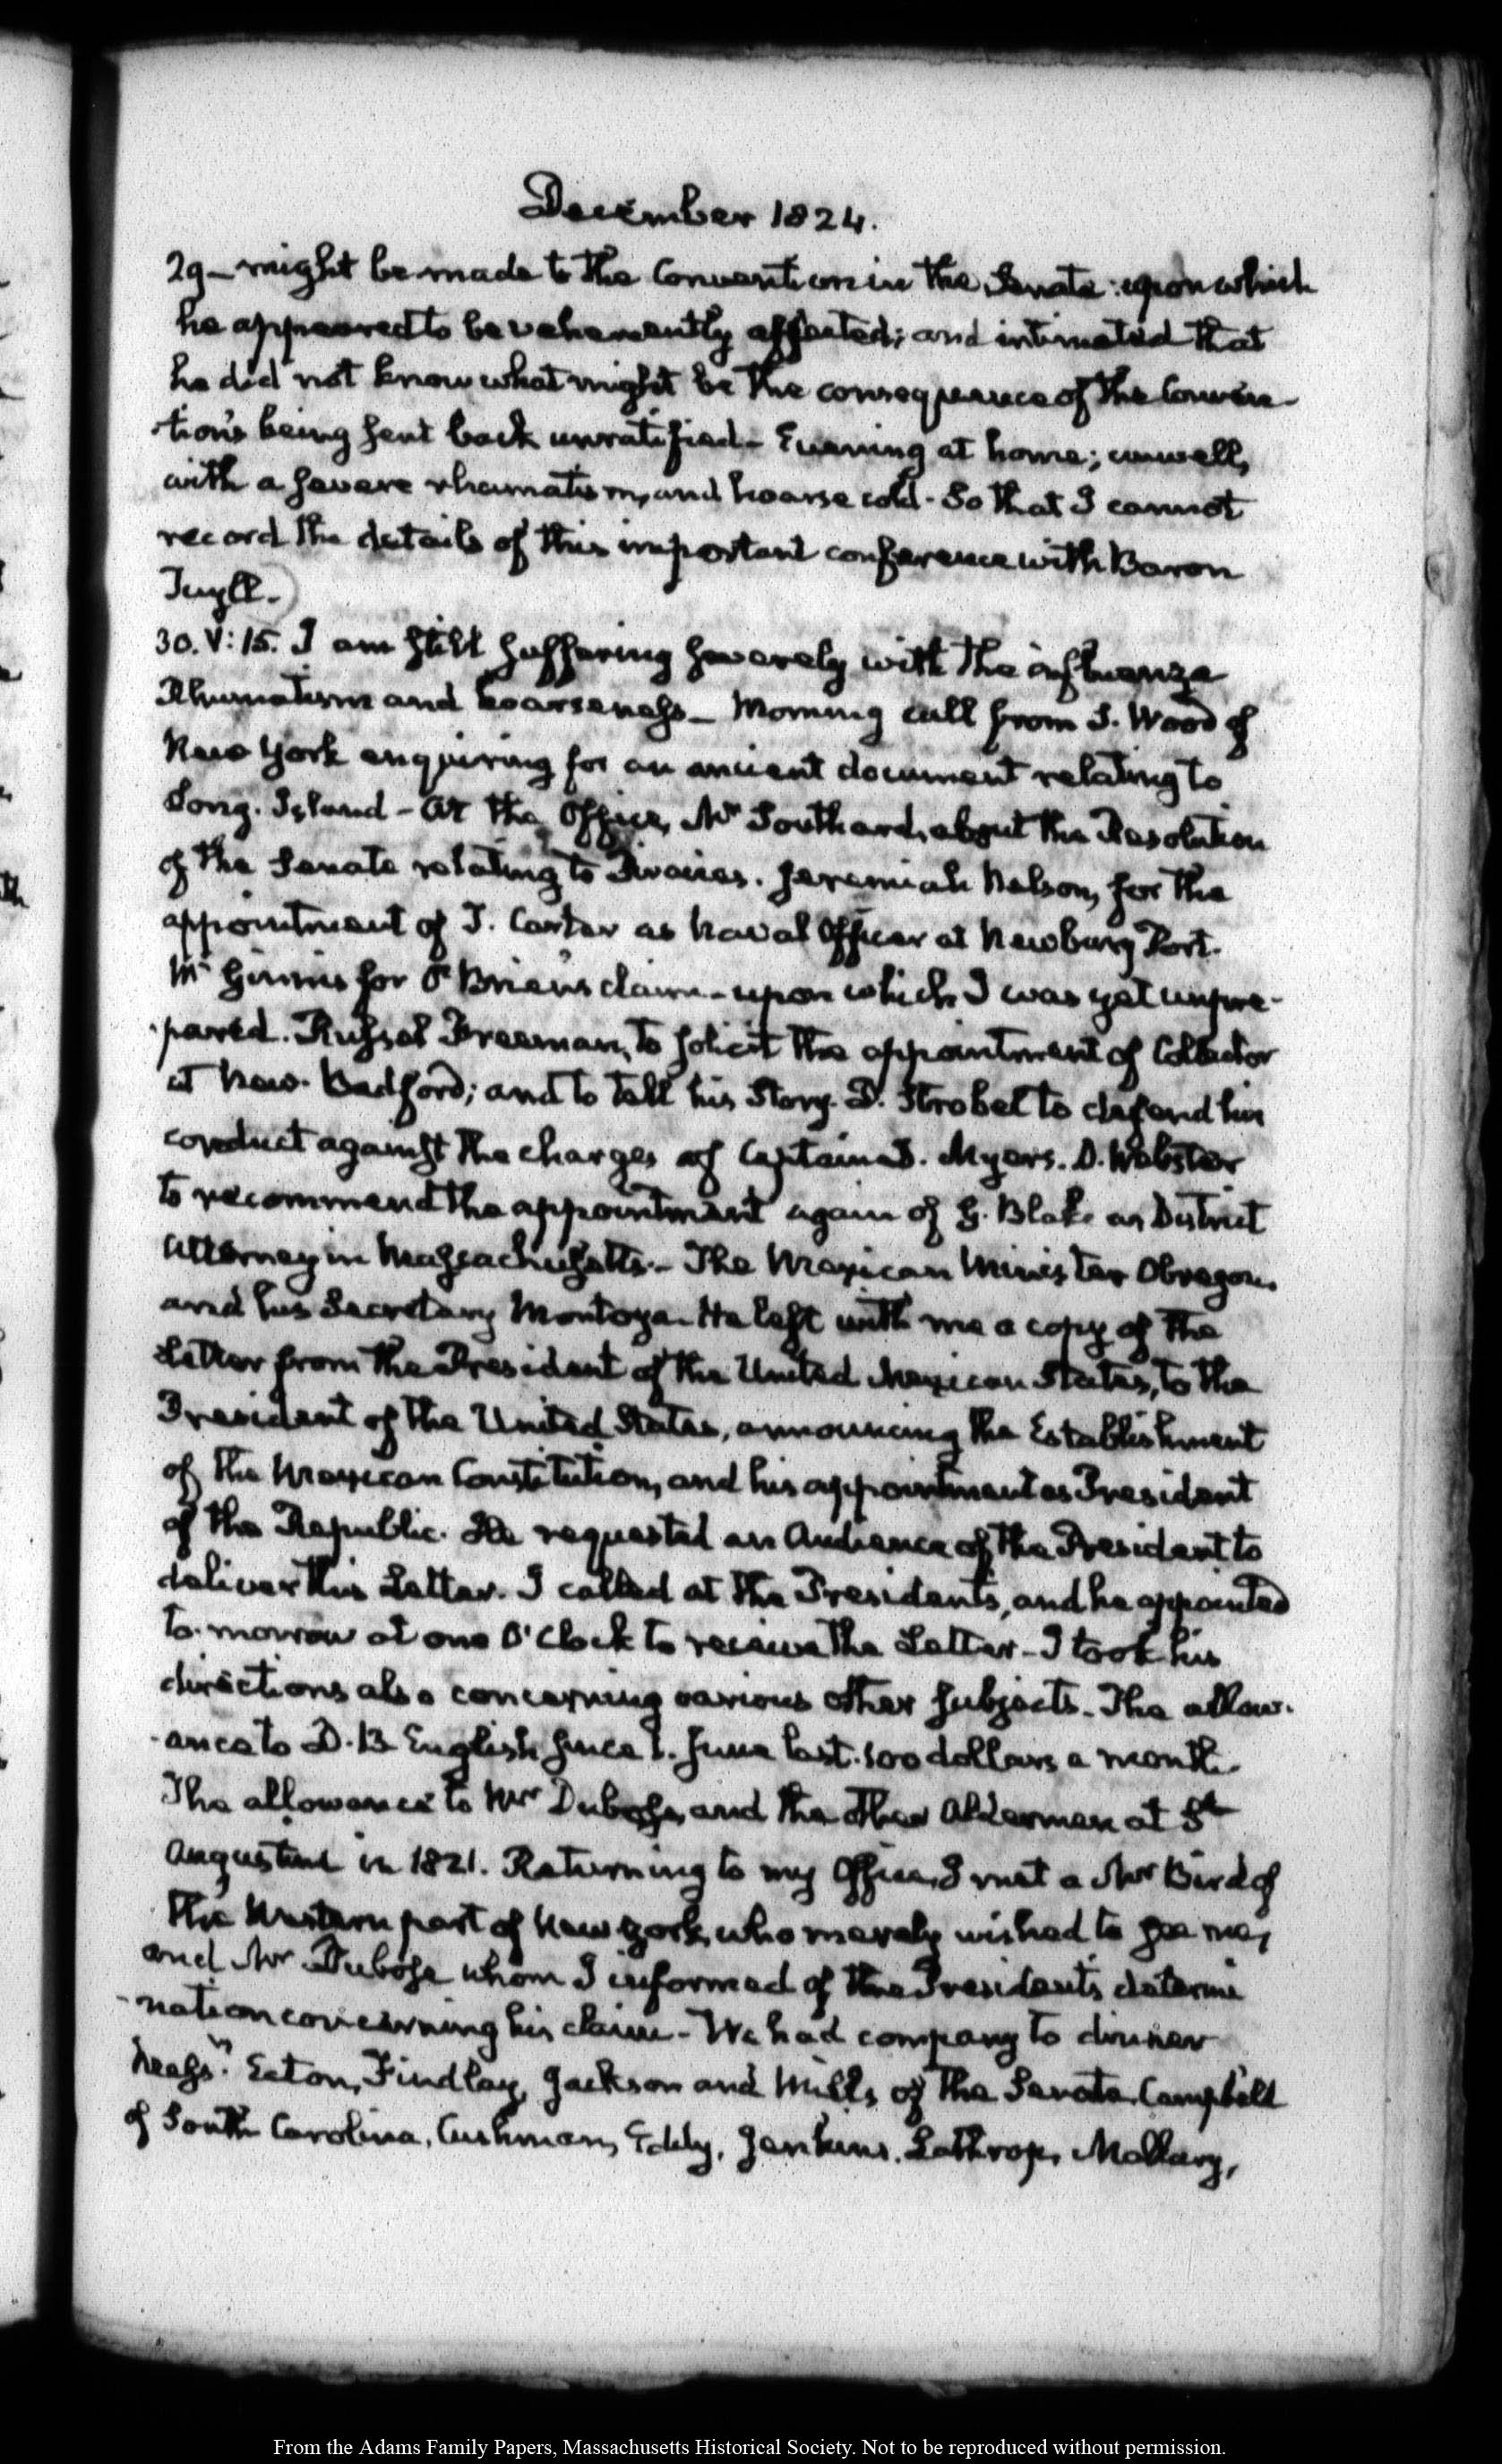 December 1824.
29 — might be made to the Convention in the Senate: upon which
he appeared to be vehemently affected; and intimated that
he did not know what might be the consequence of the Conven-
-tion's being sent back unratified — Evening at home; unwell,
with a severe rheumatism, and hoarse cold. So that I cannot
record the details of this important conference with Baron
Tuyll.
30. V:15. I am still suffering severely with the influenza
Rhumatism and hoarseness — Morning call from S. Wood of
New York enquiring for an ancient document relating to
Long-Island — At the Office, Mr Southard, about the Resolution
of the Senate relating to Piracies. Jeremiah Nelson, for the
appointment of J. Carter as Naval Officer at Newbury Port.
Mr Ginnis for O'Brien's claim — upon which I was yet unpre-
-pared. Russel Freeman, to solicit the appointment of Collector
at New-Bedford; and to tell his Story. D. Strobel to defend his
conduct against the charges of Captain J. Myers. D. Webster
to recommend the appointment again of G. Blake as District
Attorney in Massachusetts. — The Mexican Minister Obregon,
and his Secretary Montoya. He left with me a copy of the
Letter from the President of the United Mexican States, to the
President of the United States, announcing the Establishment
of the Mexican Constitution, and his appointment as President
of the Republic. He requested an Audience of the President to
deliver this Letter. I called at the Presidents, and he appointed
to-morrow at one O'Clock to receive the Letter — I took his
directions also concerning various other subjects. The allow-
-ance to G. B. English since 1. June last. 100 dollars a month.
The allowance to Mr Dubose, and the other Aldermen at St
Augustine in 1821. Returning to my Office, I met a Mr Bird of
the Western part of New York, who merely wished to see me;
and Mr Dubose whom I informed of the Presidents determi
-nation concerning his claim — We had company to dinner
Messrs. Eaton, Findlay, Jackson and Mills of the Senate. Campbell
of South Carolina, Cushman, Eddy, Jenkins, Lathrop, Mallary,
From the Adams Family Papers, Massachusetts Historical Society. Not to be reproduced without permission.